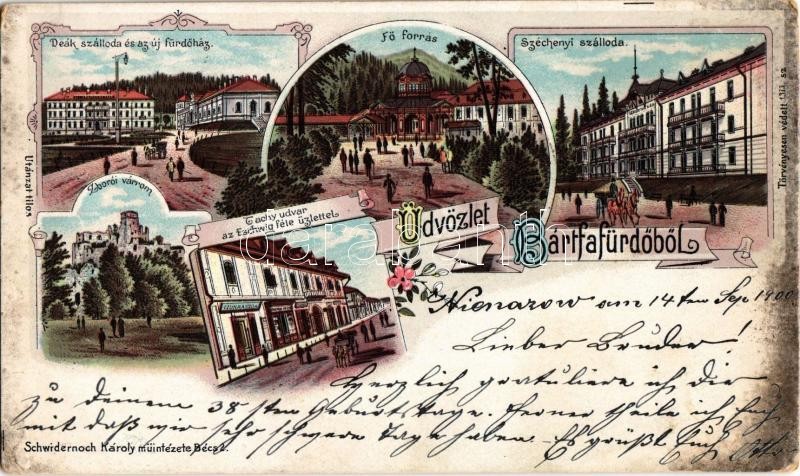 Deák szálloda és az új fürdőház.
Fő forrás
Széchenyi szálloda.
Utánzat tilos
Törvényesen védett
Zborói várrom
Tachy udvar
az Eschwig féle üzlettel.
Üdvözlet
Bártfafürdőből
darabanth
am 14ten Sep 1900
Lieber Bruder!
Herzlich gratuliere ich dir
zu deinem 38sten Geburtstage. Ferner theile ich Euch
mit daß wir sehr schwere Tage haben. Es grüßt Euch Otto
Schwidernoch Károly műintézete Bécs 2.